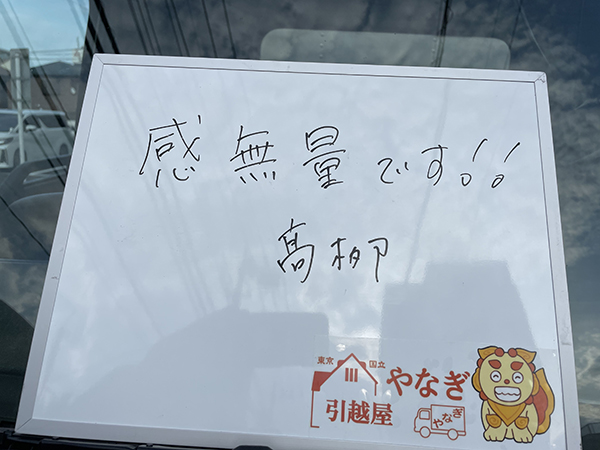 感無量です!!
髙柳
東京 国立
引越屋
やなぎ
やなぎ